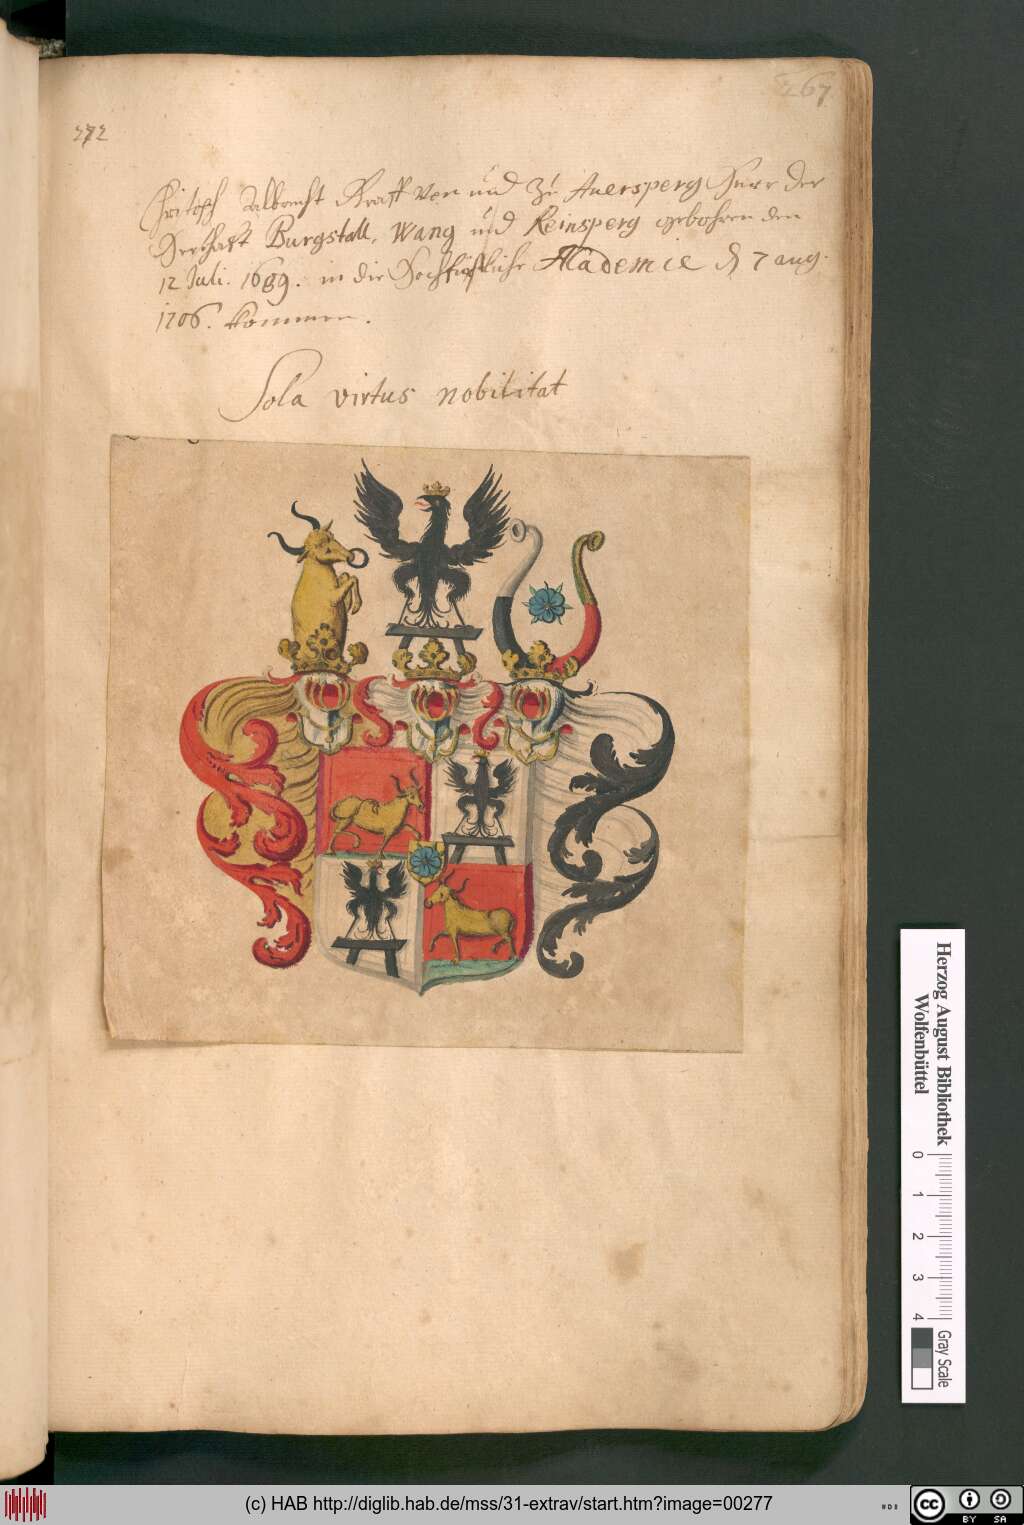 267
272
Christoph Albrecht Graff von und Zu Auersperg Herr der
Herschaft Burgstall, Wang und Reinsperg gebohren den
12 Juli. 1689. in die Hochfürstliche Akademie d 7 aug.
1706. kommen.
Sola virtus nobilitat
Herzog August Bibliothek
Wolfenbüttel
0 1 2 3 4
Gray Scale
(c) HAB http://diglib.hab.de/mss/31-extrav/start.htm?image=00277
cc BY SA